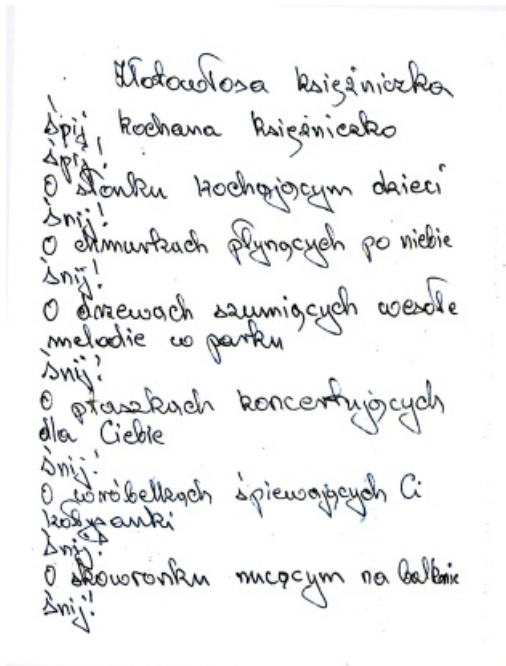 Złotowłosa księżniczka
Śpij, kochana księżniczko
śpij!
O słonku kochającym dzieci
śnij!
O chmurkach płynących po niebie
śnij!
O drzewach szumiących wesołe
melodie w parku
śnij!
O ptaszkach koncertujących
dla Ciebie
śnij!
O wróbelkach śpiewających Ci
kołysanki
śnij!
O skowronku nucącym na balkonie
śnij!